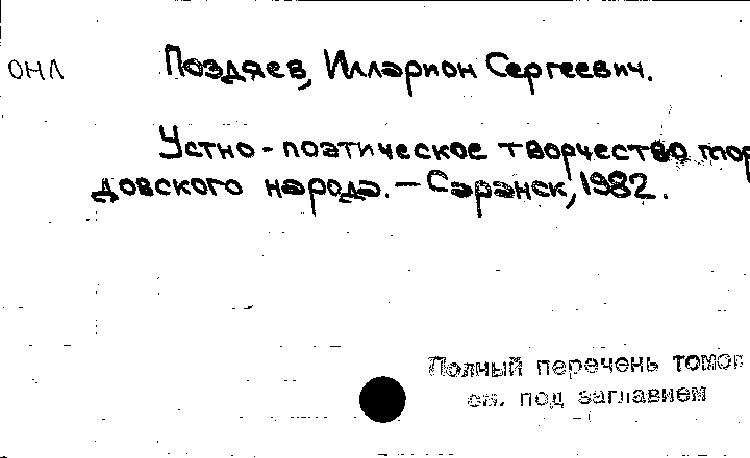 ОНЛ
Поздяев, Илларион Сергеевич.
Устно-поэтическое творчество мор
довского народа. — Саранск, 1982.
Полный перечень томов
см. под заглавием